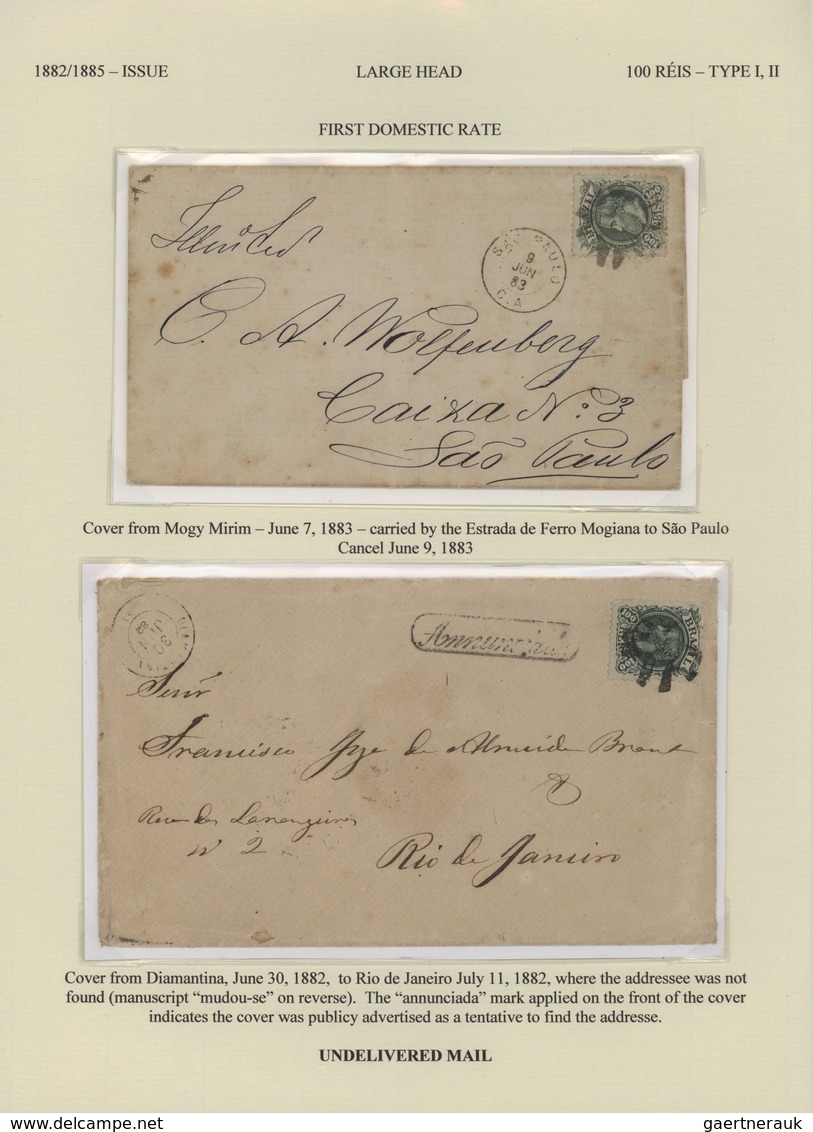 1882/1885 – ISSUE LARGE HEAD 100 RÉIS – TYPE I, II
FIRST DOMESTIC RATE
BRAZIL
SÃO PAULO
9
JUN
83
C. A. Wolfenberg
Caixa N: 3
São Paulo
Cover from Mogy Mirim – June 7, 1883 – carried by the Estrada de Ferro Mogiana to São Paulo
Cancel June 9, 1883
Annunciada
BRAZIL
Senr
Francisco de Almeida Brant
Rua das Laranjeiras
N 2
Rio de Janeiro
Cover from Diamantina, June 30, 1882, to Rio de Janeiro July 11, 1882, where the addressee was not
found (manuscript “mudou-se” on reverse). The “annunciada” mark applied on the front of the cover
indicates the cover was publicy advertised as a tentative to find the addresse.
UNDELIVERED MAIL
DELCAMPE.NET
gaertnerauk